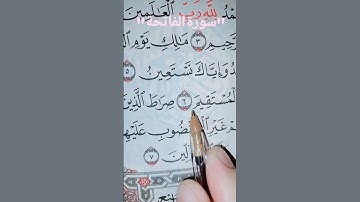 "سورة الفاتحة"
مْدُ لِلَّهِ رَبِّ الْعَالَمِينَ
رَحِيمِ ٣ مَالِكِ يَوْمِ ال
دُ وَإِيَّاكَ نَسْتَعِينُ ٥
الْمُسْتَقِيمَ ٦ صِرَاطَ الَّذِينَ
مْ غَيْرِ الْمَغْضُوبِ عَلَيْهِ
الِّينَ ٧